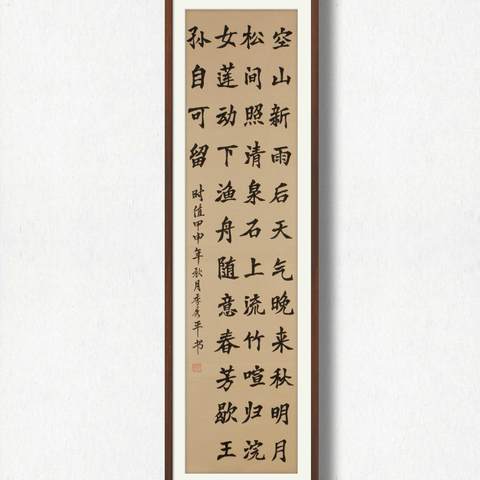 空山新雨后天气晚来秋明月
松间照清泉石上流竹喧归浣
女莲动下渔舟随意春芳歇王
孙自可留
时值甲申年秋月李平书